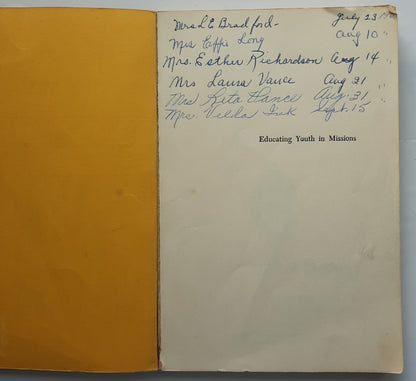 Mrs L E Bradford - July 23
Mrs Effie Long Aug 10 "
Mrs. Esther Richardson Aug 14 "
Mrs Laura Vance Aug 21 "
Mrs Rita Vance Aug. 31 "
Mrs. Velda Ink Sept. 15 "
Educating Youth in Missions